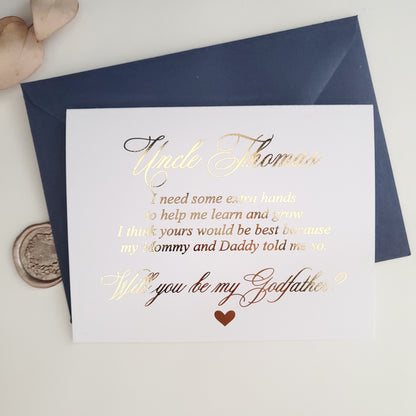 Uncle Thomas
I need some extra hands
to help me learn and grow
I think yours would be best because
my Mommy and Daddy told me so.
Will you be my Godfather?